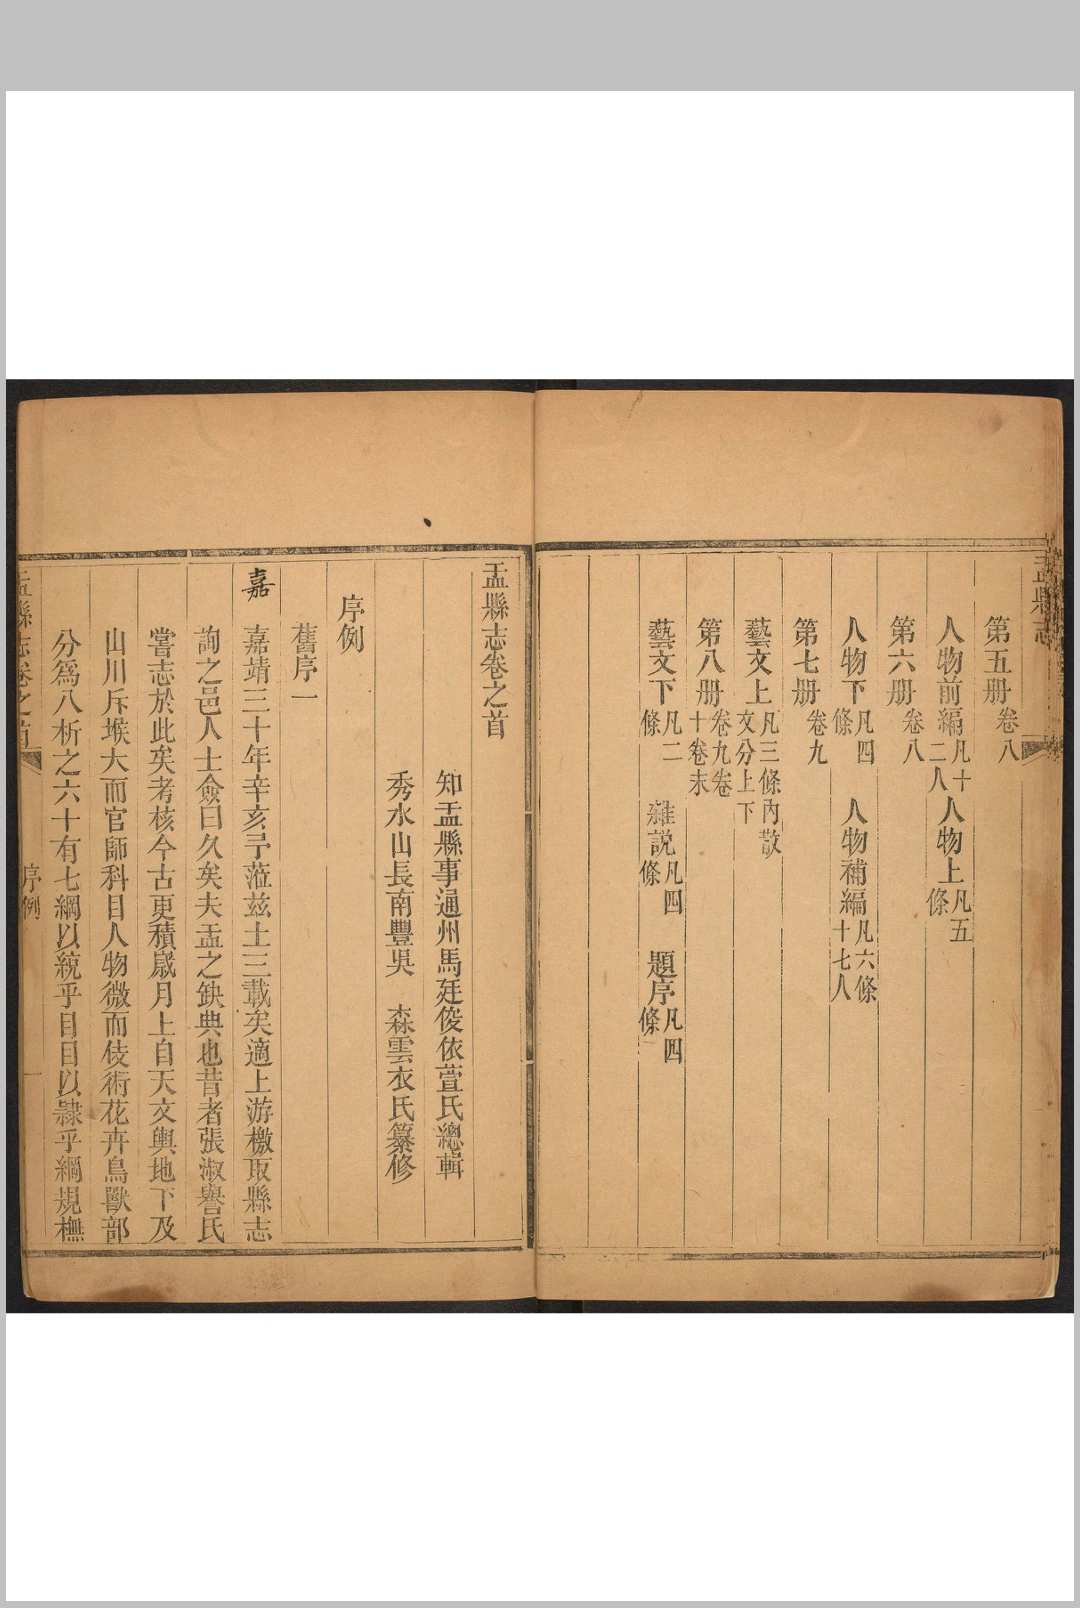 盂縣志
第五册 卷八
人物前編 凡十二人 人物上 凡五條
第六册 卷八
人物下 凡四條 人物補編 凡六條十七人
第七册 卷九
藝文上 凡三條內散文分上下
第八册 卷九卷十卷末
藝文下 凡二條 雜説 凡四條 題序 凡四條
盂縣志卷之首
知盂縣事通州馬廷俊依萱氏總輯
秀水山長南豐吳 森雲衣氏纂修
序例
舊序一
嘉 嘉靖三十年辛亥予蒞兹土三載矣適上游檄取縣志
詢之邑人士僉曰久矣夫盂之缺典也昔者張淑譽氏
嘗志於此矣考核今古更積歲月上自天文輿地下及
山川斥堠大而官師科目人物微而伎術花卉鳥獸部
分爲八析之六十有七綱以統乎目目以隷乎綱規橅
盂縣志卷之首 序例 一